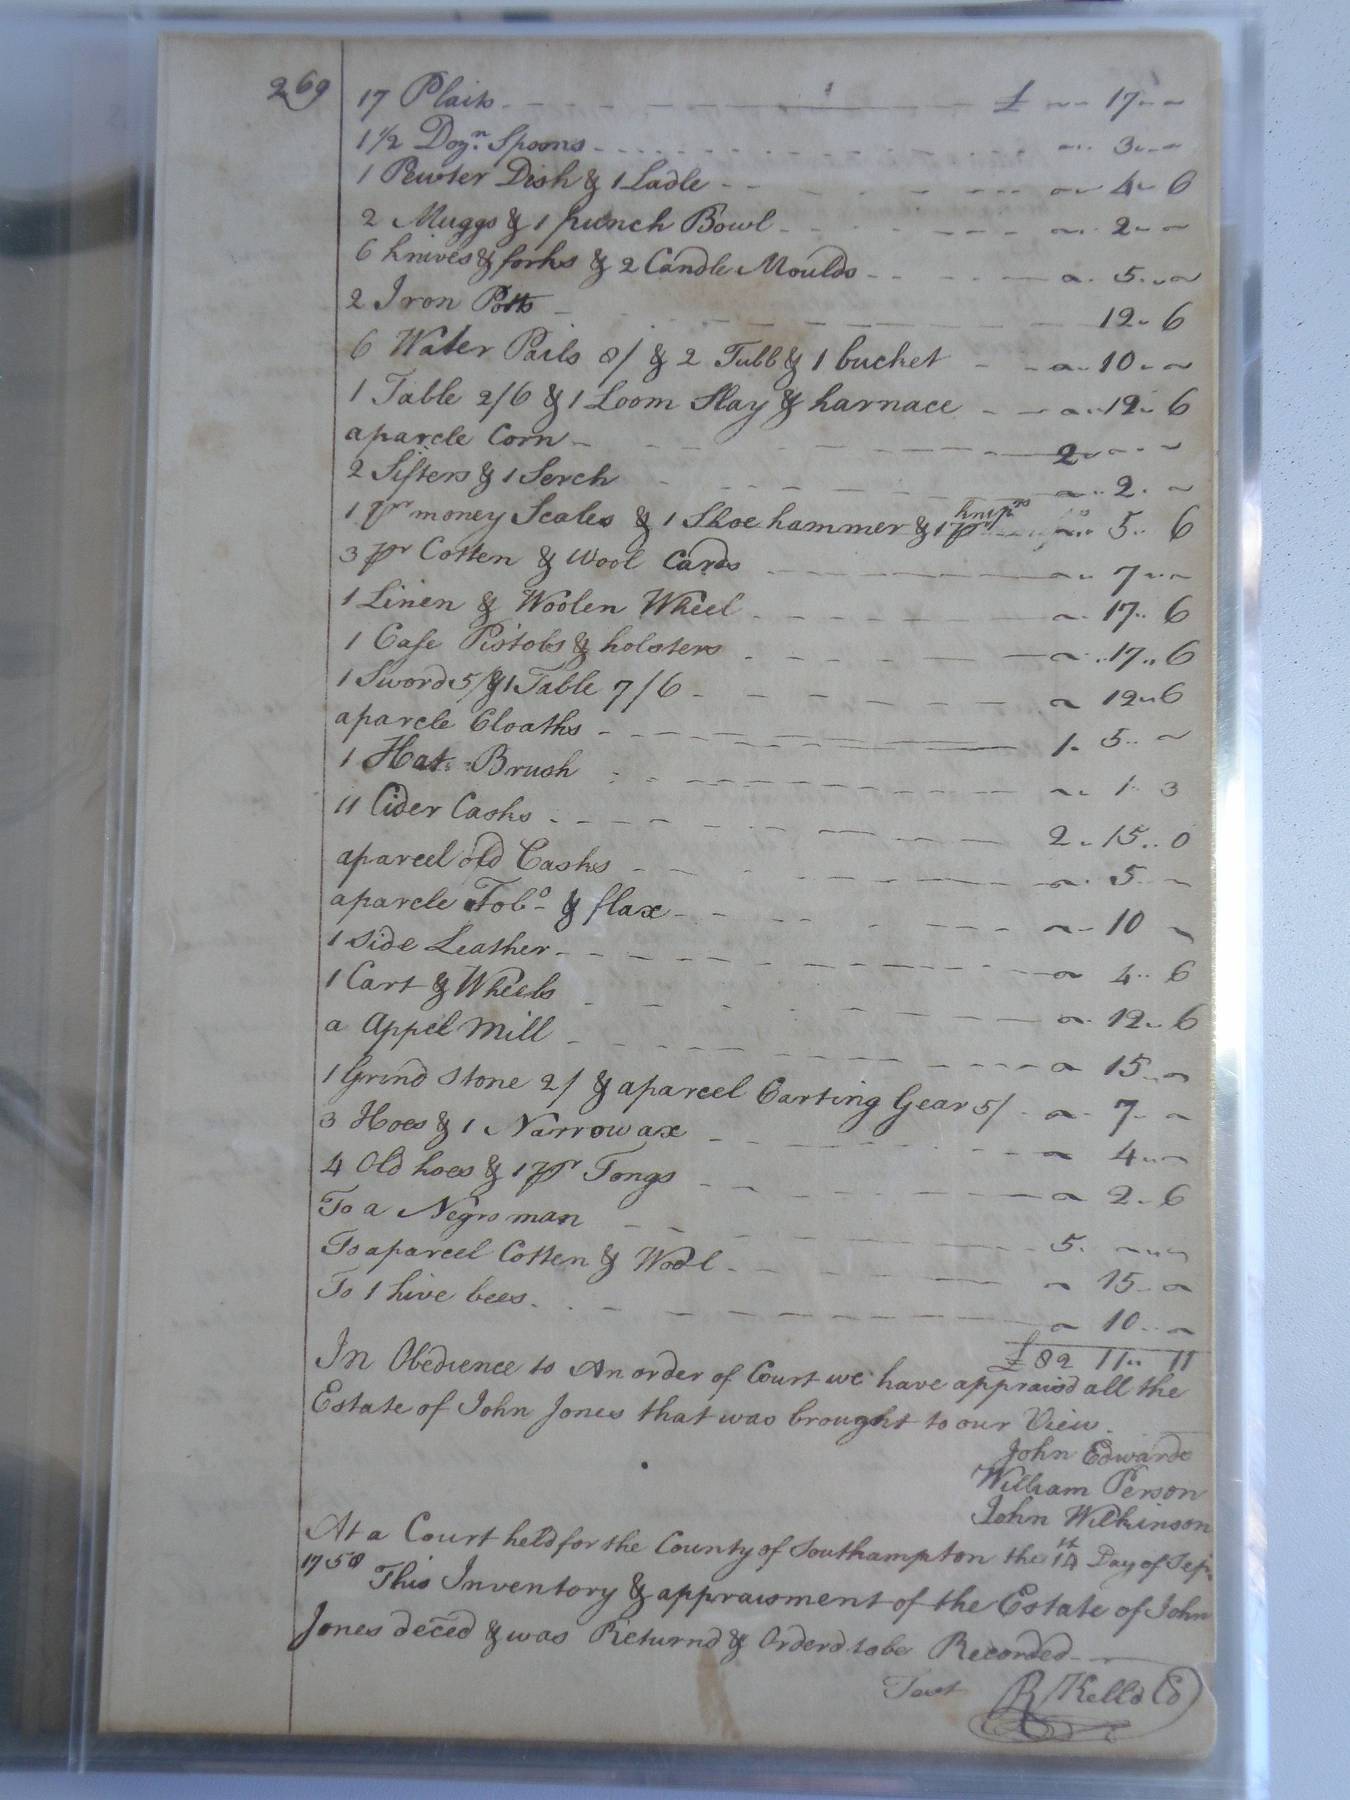 269
17 Plaits - - - £ ~ ~ 17 ~ ~
1 1/2 Dozn. Spoons - - - ~ 3 ~ ~
1 Pewter Dish & 1 Ladle - - ~ 4 ~ 6
2 Muggs & 1 punch Bowl - - - ~ 2 ~ ~
6 knives & forks & 2 Candle Moulds - - - ~ 5 ~ ~
2 Iron Potts - - - 12 ~ 6
6 Water Pails 8/ & 2 Tubb & 1 bucket - - ~ 10 ~ ~
1 Table 2/6 & 1 Loom Slay & harnace - - ~ 12 ~ 6
aparcle Corn - - - 2 ~ ~ ~
2 Sifters & 1 Serch - - - ~ 2 ~
1 pr money Scales & 1 Shoe hammer & 1 pr ~ 5 .. 6
3 pr Cotten & Wool Cards - - - ~ 7 ~ ~
1 Linen & Woolen Wheel - - - ~ 17 .. 6
1 Case Pistobs & holsters - - - ~ 17 .. 6
1 Sword 5/ & 1 Table 7/6 - - - ~ 12 ~ 6
aparcle Cloaths - - - 1 . 5 .. ~
1 Hat Brush - - - ~ 1 . 3
11 Cider Casks - - - 2 .. 15 .. 0
aparcel old Casks - - - ~ 5 ~
aparcle Tobo & flax - - - ~ 10 ~
1 side Leather - - - ~ 4 .. 6
1 Cart & Wheels - - - ~ 12 .. 6
a Appel Mill - - - ~ 15 .. ~
1 Grind stone 2/ & aparcel Carting Gear 5/ - ~ 7 ~ ~
3 Hoes & 1 Narrow ax - - - ~ 4 ~ ~
4 Old hoes & 1 pr Tongs - - - ~ 2 ~ 6
To a Negro man - - - 5 . ~ ~
To aparcel Cotten & Wool - - - ~ 15 ~ ~
To 1 hive bees - - - ~ 10 .. ~
£82 11 .. 11
In Obedience to An order of Court we have appraisd all the
Estate of John Jones that was brought to our View.
John Edwards
William Person
John Wilkinson
At a Court held for the County of Southampton the 14th Day of Sepr.
1758 This Inventory & appraisment of the Estate of John
Jones deced & was Returnd & Orderd to be Recorded
Test R Kello CC